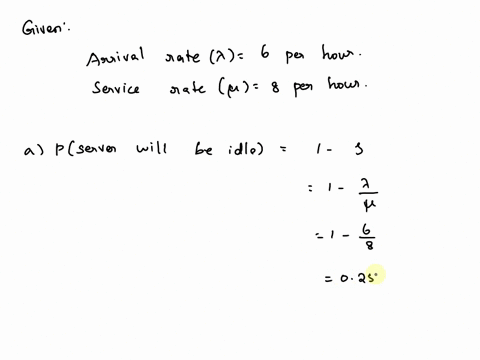 Given:
Arrival rate (λ) = 6 per hour.
Service rate (μ) = 8 per hour.
a) P(server will be idle) = 1 - ρ
= 1 - λ/μ
= 1 - 6/8
= 0.25